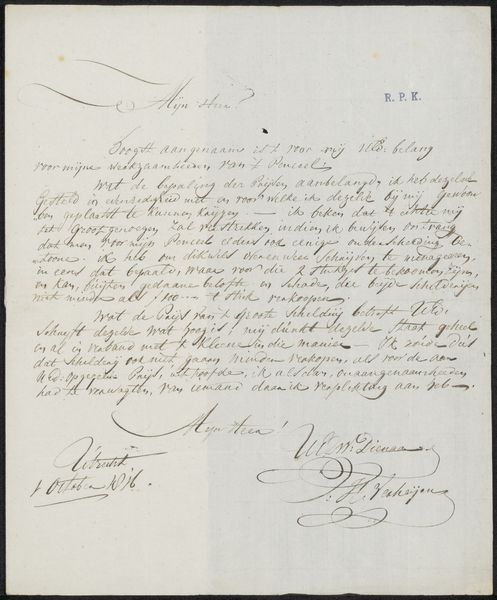 R. P. K.
Mijn Heer!
Hoogst aangenaam is 't voor mij UEd: belang
voor mijne werkzaamheeden van 't Penceel:
Wat de bepaling der Prijsen aanbelangd, ik heb dezelve
gesteld in eenvoudigheid met en voor welke ik dezelve bij mij gewoon
ben geplaatst te kunnen krijgen. — ik beken dat 't echter mij
tot Groot genoegen zal verstrekken indien ik bewijsen ontvang
dat men voor mijn Penceel elders ook eenige onderscheiding be-
toone. ik heb om dikwils overenweer Schrijven te
in eens dat bepaald, waar voor die 2 stukjes te bekoomen zijn,
en kan, buijten gedaane belofte en Schade, die beijde Schilderijen
niet minder als ƒ 100 — 't stuk verkoopen.
Wat de Prijs van 't Groote Schilderij betreft UEd.
Schrijft dezelve wat hoog is! mij dunkt dezelve Staat geheel
en al in verband met 't kleine in die manier — Ik zoude dus
dat Schilderij ook niet gaaren minder verkopen, als voor de aan
UEd: opgegeeve Prijs, uit hoofde, ik alsdan, onaangenaamheeden
had te verwagten, van iemand daar ik verpligting aan heb —
Mijn Heer!
UEd Wel Dienaar
J. H. Verheijen
Utrecht
1 October 1816.